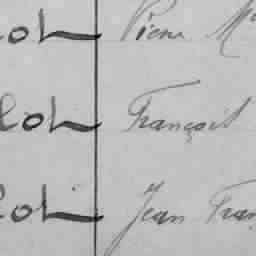 lot Pierre M
lot François
lot Jean Fran